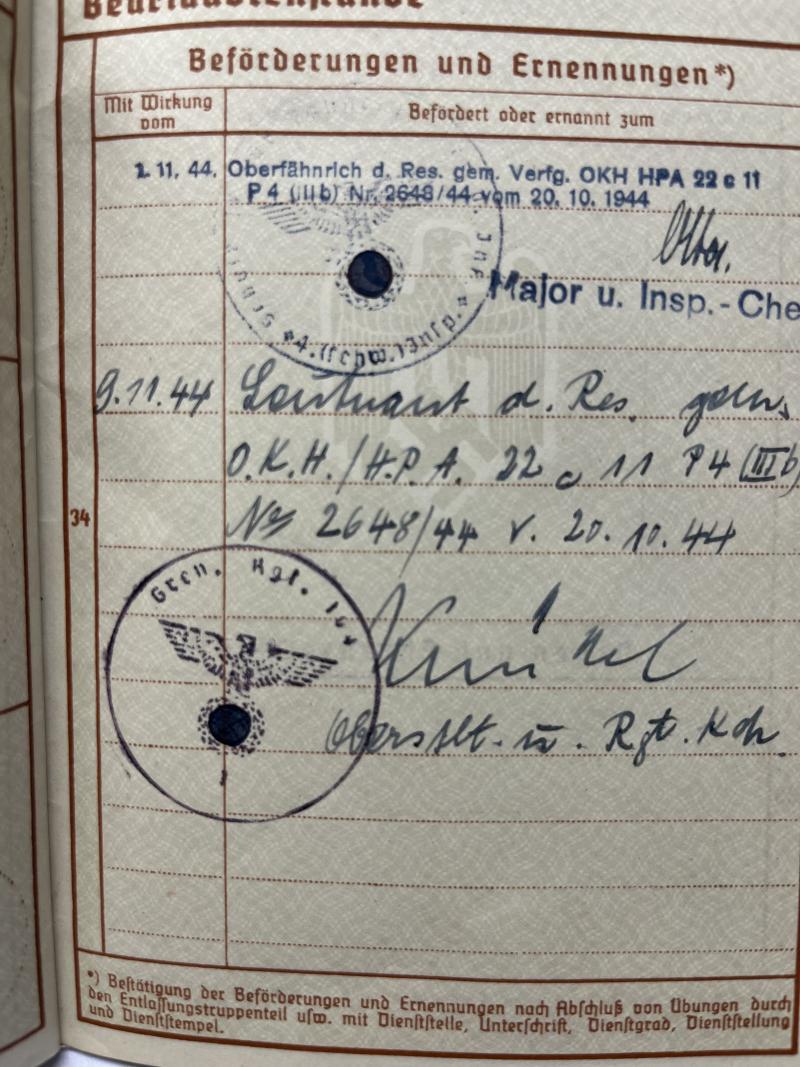 Beurlaubtenstande
Beförderungen und Ernennungen *)
Mit Wirkung vom
Befördert oder ernannt zum
1. 11. 44. Oberfähnrich d. Res. gem. Verfg. OKH HPA 22 c 11
P 4 (IIIb) Nr. 2648/44 vom 20. 10. 1944
Major u. Insp.-Che
9.11.44 Leutnant d. Res. gem.
O.K.H./H.P.A. 22 c 11 P4 (IIIb)
34
Nr 2648/44 v. 20. 10. 44
Gren. Rgt.
Oberstlt. u. Rgt. Kdr.
*) Bestätigung der Beförderungen und Ernennungen nach Abschluß von Übungen durch
den Entlassungstruppenteil usw. mit Dienststelle, Unterschrift, Dienstgrad, Dienststellung
und Dienststempel.